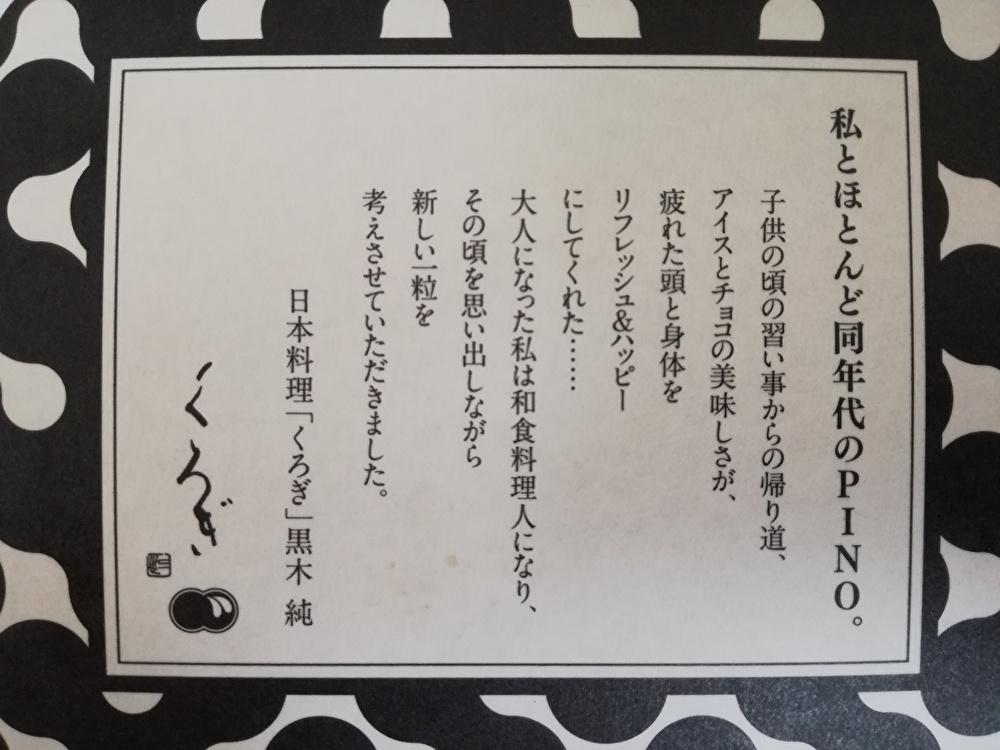 私とほとんど同年代のPINO。
子供の頃の習い事からの帰り道、
アイスとチョコの美味しさが、
疲れた頭と身体を
リフレッシュ&ハッピー
にしてくれた……
大人になった私は和食料理人になり、
その頃を思い出しながら
新しい一粒を
考えさせていただきました。
日本料理「くろぎ」黒木 純
くろぎ